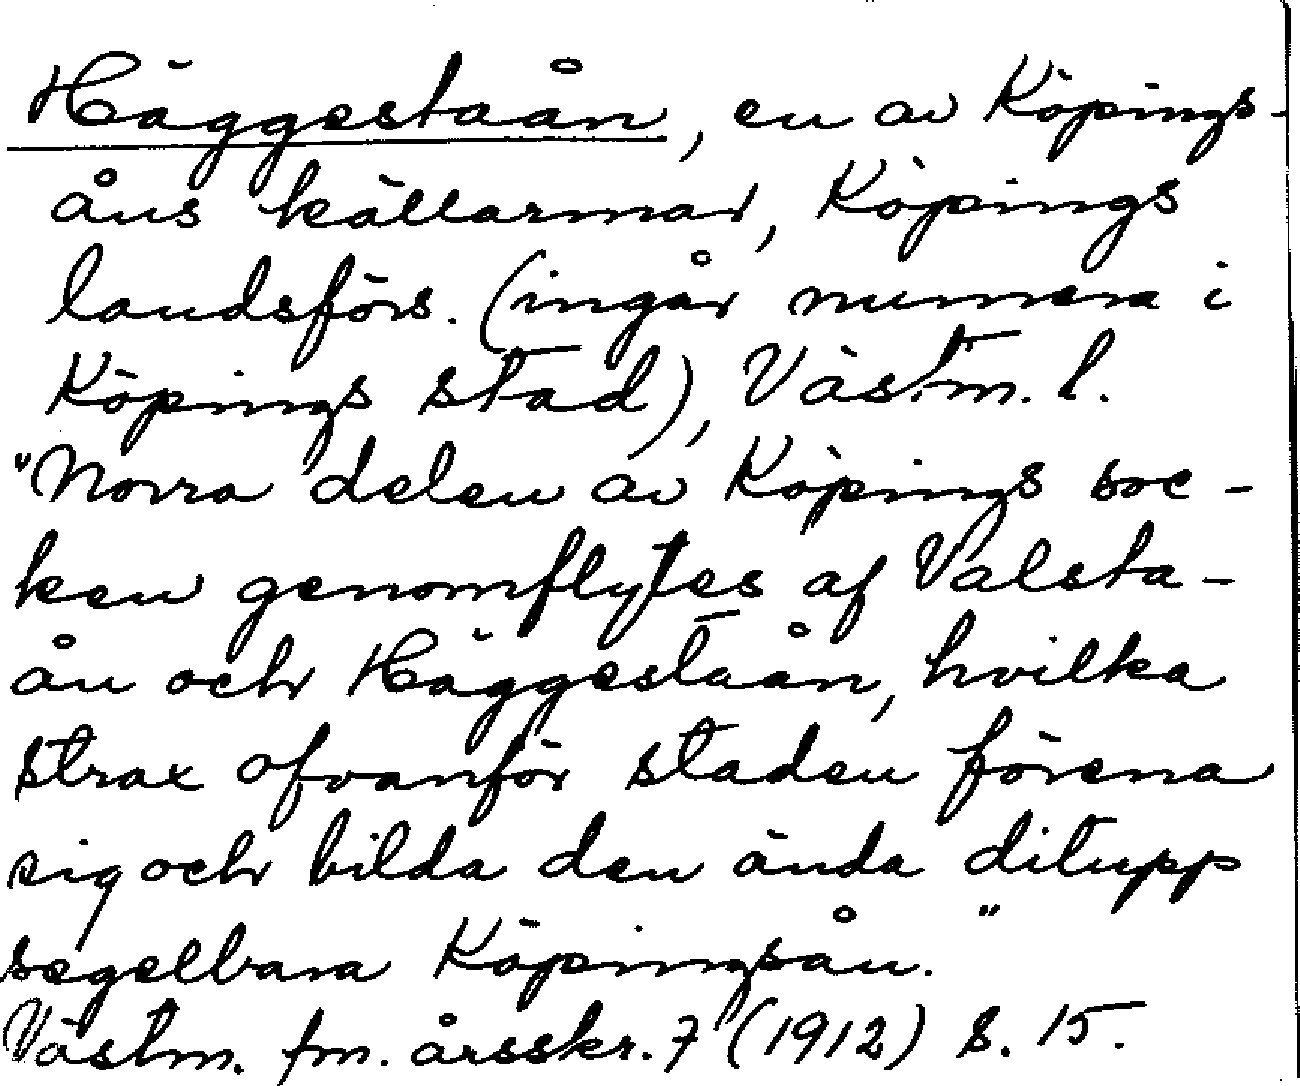 Häggestaån, en av Köpings-
åns källarmar, Köpings
landsförs. (ingår numera i
Köpings stad), Västm. l.
"Norra delen av Köpings soc-
ken genomflytes af Valsta-
ån och Häggestaån, hvilka
strax ofvanför staden förena
sig och bilda den ända ditupp
segelbara Köpingsån."
Västm. fm. årsskr. 7 (1912) s. 15.